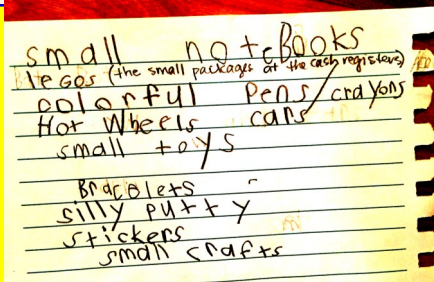 small noteBooks
leGos (the small packages at the cash registers)
colorful Pens/crayons
Hot Wheels cars
small toys
BracElets
silly putty
stickers
small crafts